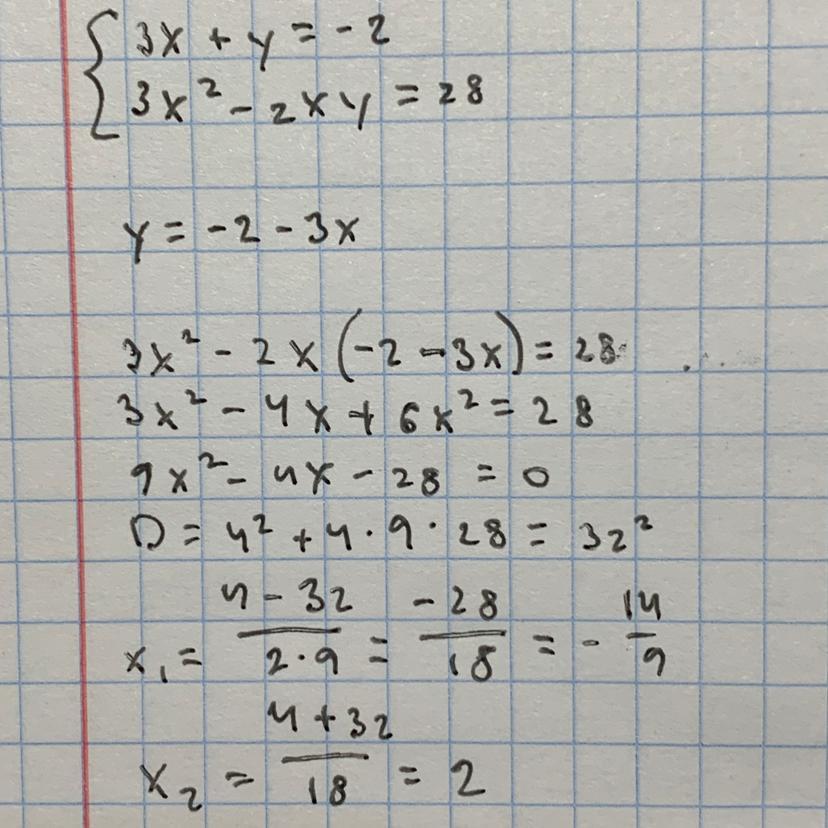 3x + y = -2
3x² - 2xy = 28
y = -2 - 3x
3x² - 2x(-2 - 3x) = 28
3x² - 4x + 6x² = 28
9x² - 4x - 28 = 0
D = 4² + 4·9·28 = 32²
x₁ = (4 - 32)/(2·9) = -28/18 = -14/9
x₂ = (4 + 32)/18 = 2